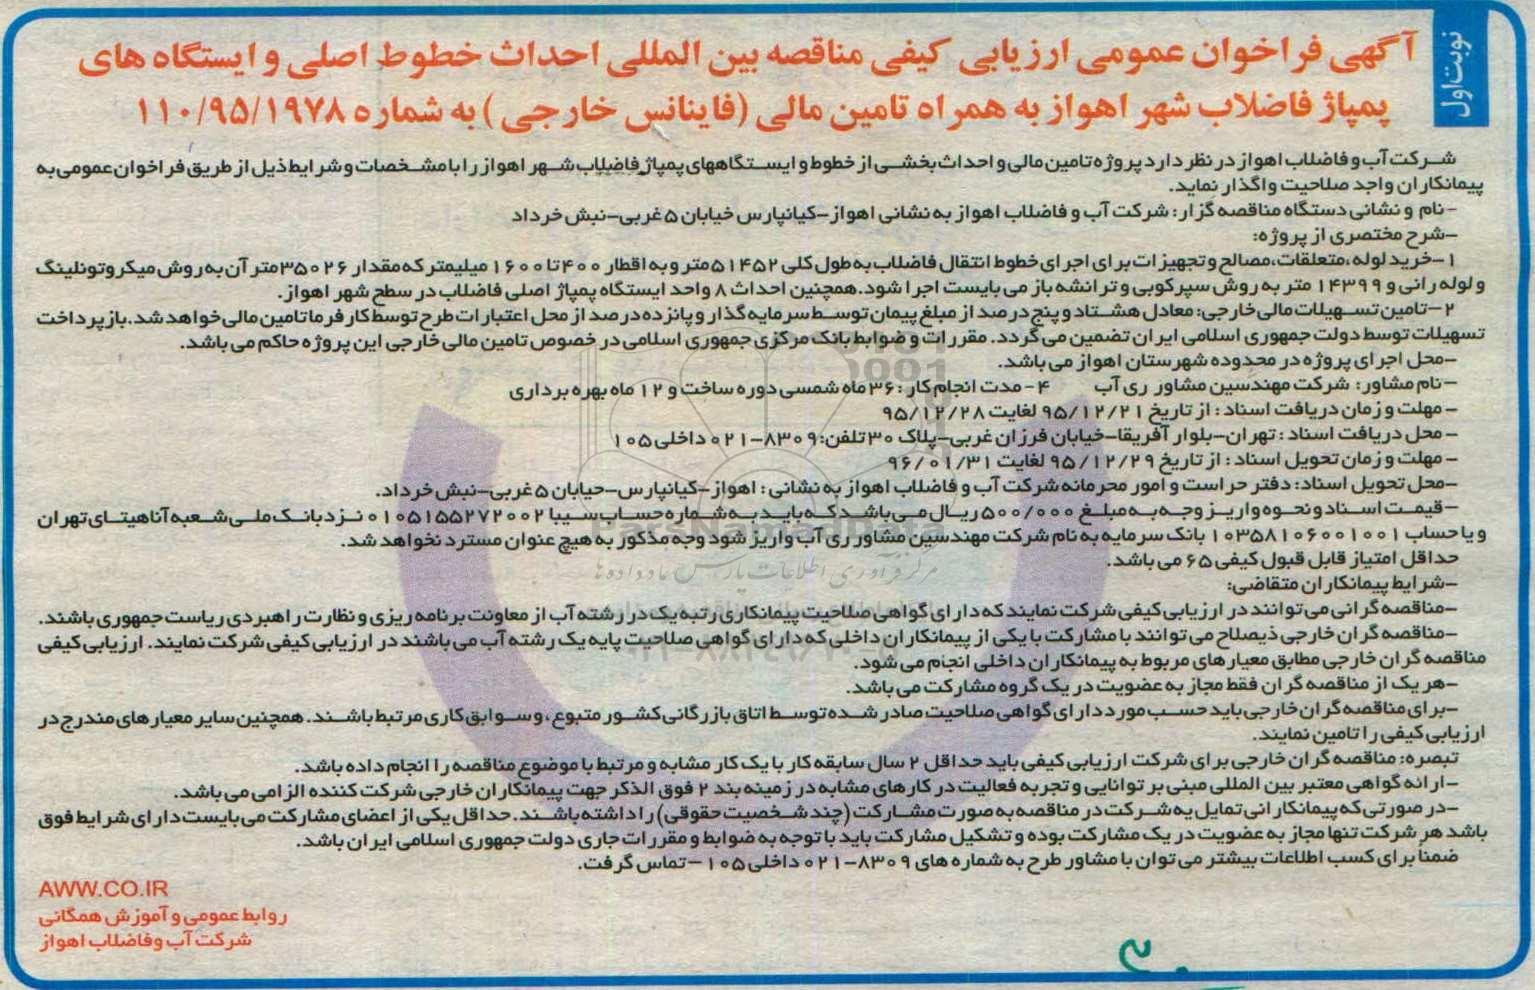 نوبت اول
آگهی فراخوان عمومی ارزیابی کیفی مناقصه بین المللی احداث خطوط اصلی و ایستگاه های
پمپاژ فاضلاب شهر اهواز به همراه تامین مالی (فاینانس خارجی) به شماره ۱۱۰/۹۵/۱۹۷۸
شرکت آب و فاضلاب اهواز در نظر دارد پروژه تامین مالی و احداث بخشی از خطوط و ایستگاههای پمپاژ فاضلاب شهر اهواز را با مشخصات و شرایط ذیل از طریق فراخوان عمومی به
پیمانکاران واجد صلاحیت واگذار نماید.
-نام و نشانی دستگاه مناقصه گزار: شرکت آب و فاضلاب اهواز به نشانی اهواز-کیانپارس خیابان ۵ غربی-نبش خرداد
-شرح مختصری از پروژه:
۱-خرید لوله، متعلقات، مصالح و تجهیزات برای اجرای خطوط انتقال فاضلاب به طول کلی ۵۱۴۵۲ متر و به اقطار ۴۰۰ تا ۱۶۰۰ میلیمتر که مقدار ۳۵۰۲۶ متر آن به روش میکروتونلینگ
و لوله رانی و ۱۴۳۹۹ متر به روش سپرکوبی و ترانشه باز می بایست اجرا شود. همچنین احداث ۸ واحد ایستگاه پمپاژ اصلی فاضلاب در سطح شهر اهواز.
۲-تامین تسهیلات مالی خارجی: معادل هشتاد و پنج درصد از مبلغ پیمان توسط سرمایه گذار و پانزده درصد از محل اعتبارات طرح توسط کارفرما تامین مالی خواهد شد. بازپرداخت
تسهیلات توسط دولت جمهوری اسلامی ایران تضمین می گردد. مقررات و ضوابط بانک مرکزی جمهوری اسلامی در خصوص تامین مالی خارجی این پروژه حاکم می باشد.
-محل اجرای پروژه در محدوده شهرستان اهواز می باشد.
-نام مشاور: شرکت مهندسین مشاور ری آب ۴- مدت انجام کار: ۳۶ ماه شمسی دوره ساخت و ۱۲ ماه بهره برداری
- مهلت و زمان دریافت اسناد: از تاریخ ۹۵/۱۲/۲۱ لغایت ۹۵/۱۲/۲۸
- محل دریافت اسناد: تهران-بلوار آفریقا-خیابان فرزان غربی-پلاک ۳۰ تلفن: ۸۳۰۹-۰۲۱ داخلی ۱۰۵
- مهلت و زمان تحویل اسناد: از تاریخ ۹۵/۱۲/۲۹ لغایت ۹۶/۰۱/۳۱
-محل تحویل اسناد: دفتر حراست و امور محرمانه شرکت آب و فاضلاب اهواز به نشانی: اهواز-کیانپارس-حیابان ۵ غربی-نبش خرداد.
-قیمت اسناد و نحوه واریز وجه به مبلغ ۵۰۰/۰۰۰ ریال می باشد که باید به شماره حساب سیبا ۰۱۰۵۱۵۵۲۷۲۰۰۲ نزد بانک ملی شعبه آناهیتای تهران
و یا حساب ۱۰۳۵۸۱۰۶۰۰۱۰۰۱ بانک سرمایه به نام شرکت مهندسین مشاور ری آب واریز شود وجه مذکور به هیچ عنوان مسترد نخواهد شد.
حداقل امتیاز قابل قبول کیفی ۶۵ می باشد.
-شرایط پیمانکاران متقاضی:
-مناقصه گرانی می توانند در ارزیابی کیفی شرکت نمایند که دارای گواهی صلاحیت پیمانکاری رتبه یک در رشته آب از معاونت برنامه ریزی و نظارت راهبردی ریاست جمهوری باشند.
-مناقصه گران خارجی ذیصلاح می توانند با مشارکت با یکی از پیمانکاران داخلی که دارای گواهی صلاحیت پایه یک رشته آب می باشند در ارزیابی کیفی شرکت نمایند. ارزیابی کیفی
مناقصه گران خارجی مطابق معیارهای مربوط به پیمانکاران داخلی انجام می شود.
-هر یک از مناقصه گران فقط مجاز به عضویت در یک گروه مشارکت می باشد.
-برای مناقصه گران خارجی باید حسب مورد دارای گواهی صلاحیت صادر شده توسط اتاق بازرگانی کشور متبوع، و سوابق کاری مرتبط باشند. همچنین سایر معیارهای مندرج در
ارزیابی کیفی را تامین نمایند.
تبصره: مناقصه گران خارجی برای شرکت ارزیابی کیفی باید حداقل ۲ سال سابقه کار با یک کار مشابه و مرتبط با موضوع مناقصه را انجام داده باشد.
-ارائه گواهی معتبر بین المللی مبنی بر توانایی و تجربه فعالیت در کارهای مشابه در زمینه بند ۲ فوق الذکر جهت پیمانکاران خارجی شرکت کننده الزامی می باشد.
-در صورتی که پیمانکارانی تمایل به شرکت در مناقصه به صورت مشارکت (چند شخصیت حقوقی) را داشته باشند. حداقل یکی از اعضای مشارکت می بایست دارای شرایط فوق
باشد هر شرکت تنها مجاز به عضویت در یک مشارکت بوده و تشکیل مشارکت باید با توجه به ضوابط و مقررات جاری دولت جمهوری اسلامی ایران باشد.
ضمناً برای کسب اطلاعات بیشتر می توان با مشاور طرح به شماره های ۸۳۰۹-۰۲۱ داخلی ۱۰۵-تماس گرفت.
AWW.CO.IR
روابط عمومی و آموزش همگانی
شرکت آب وفاضلاب اهواز
ParsNamadData
مرکز فرآوری اطلاعات پارس نماد داده ها